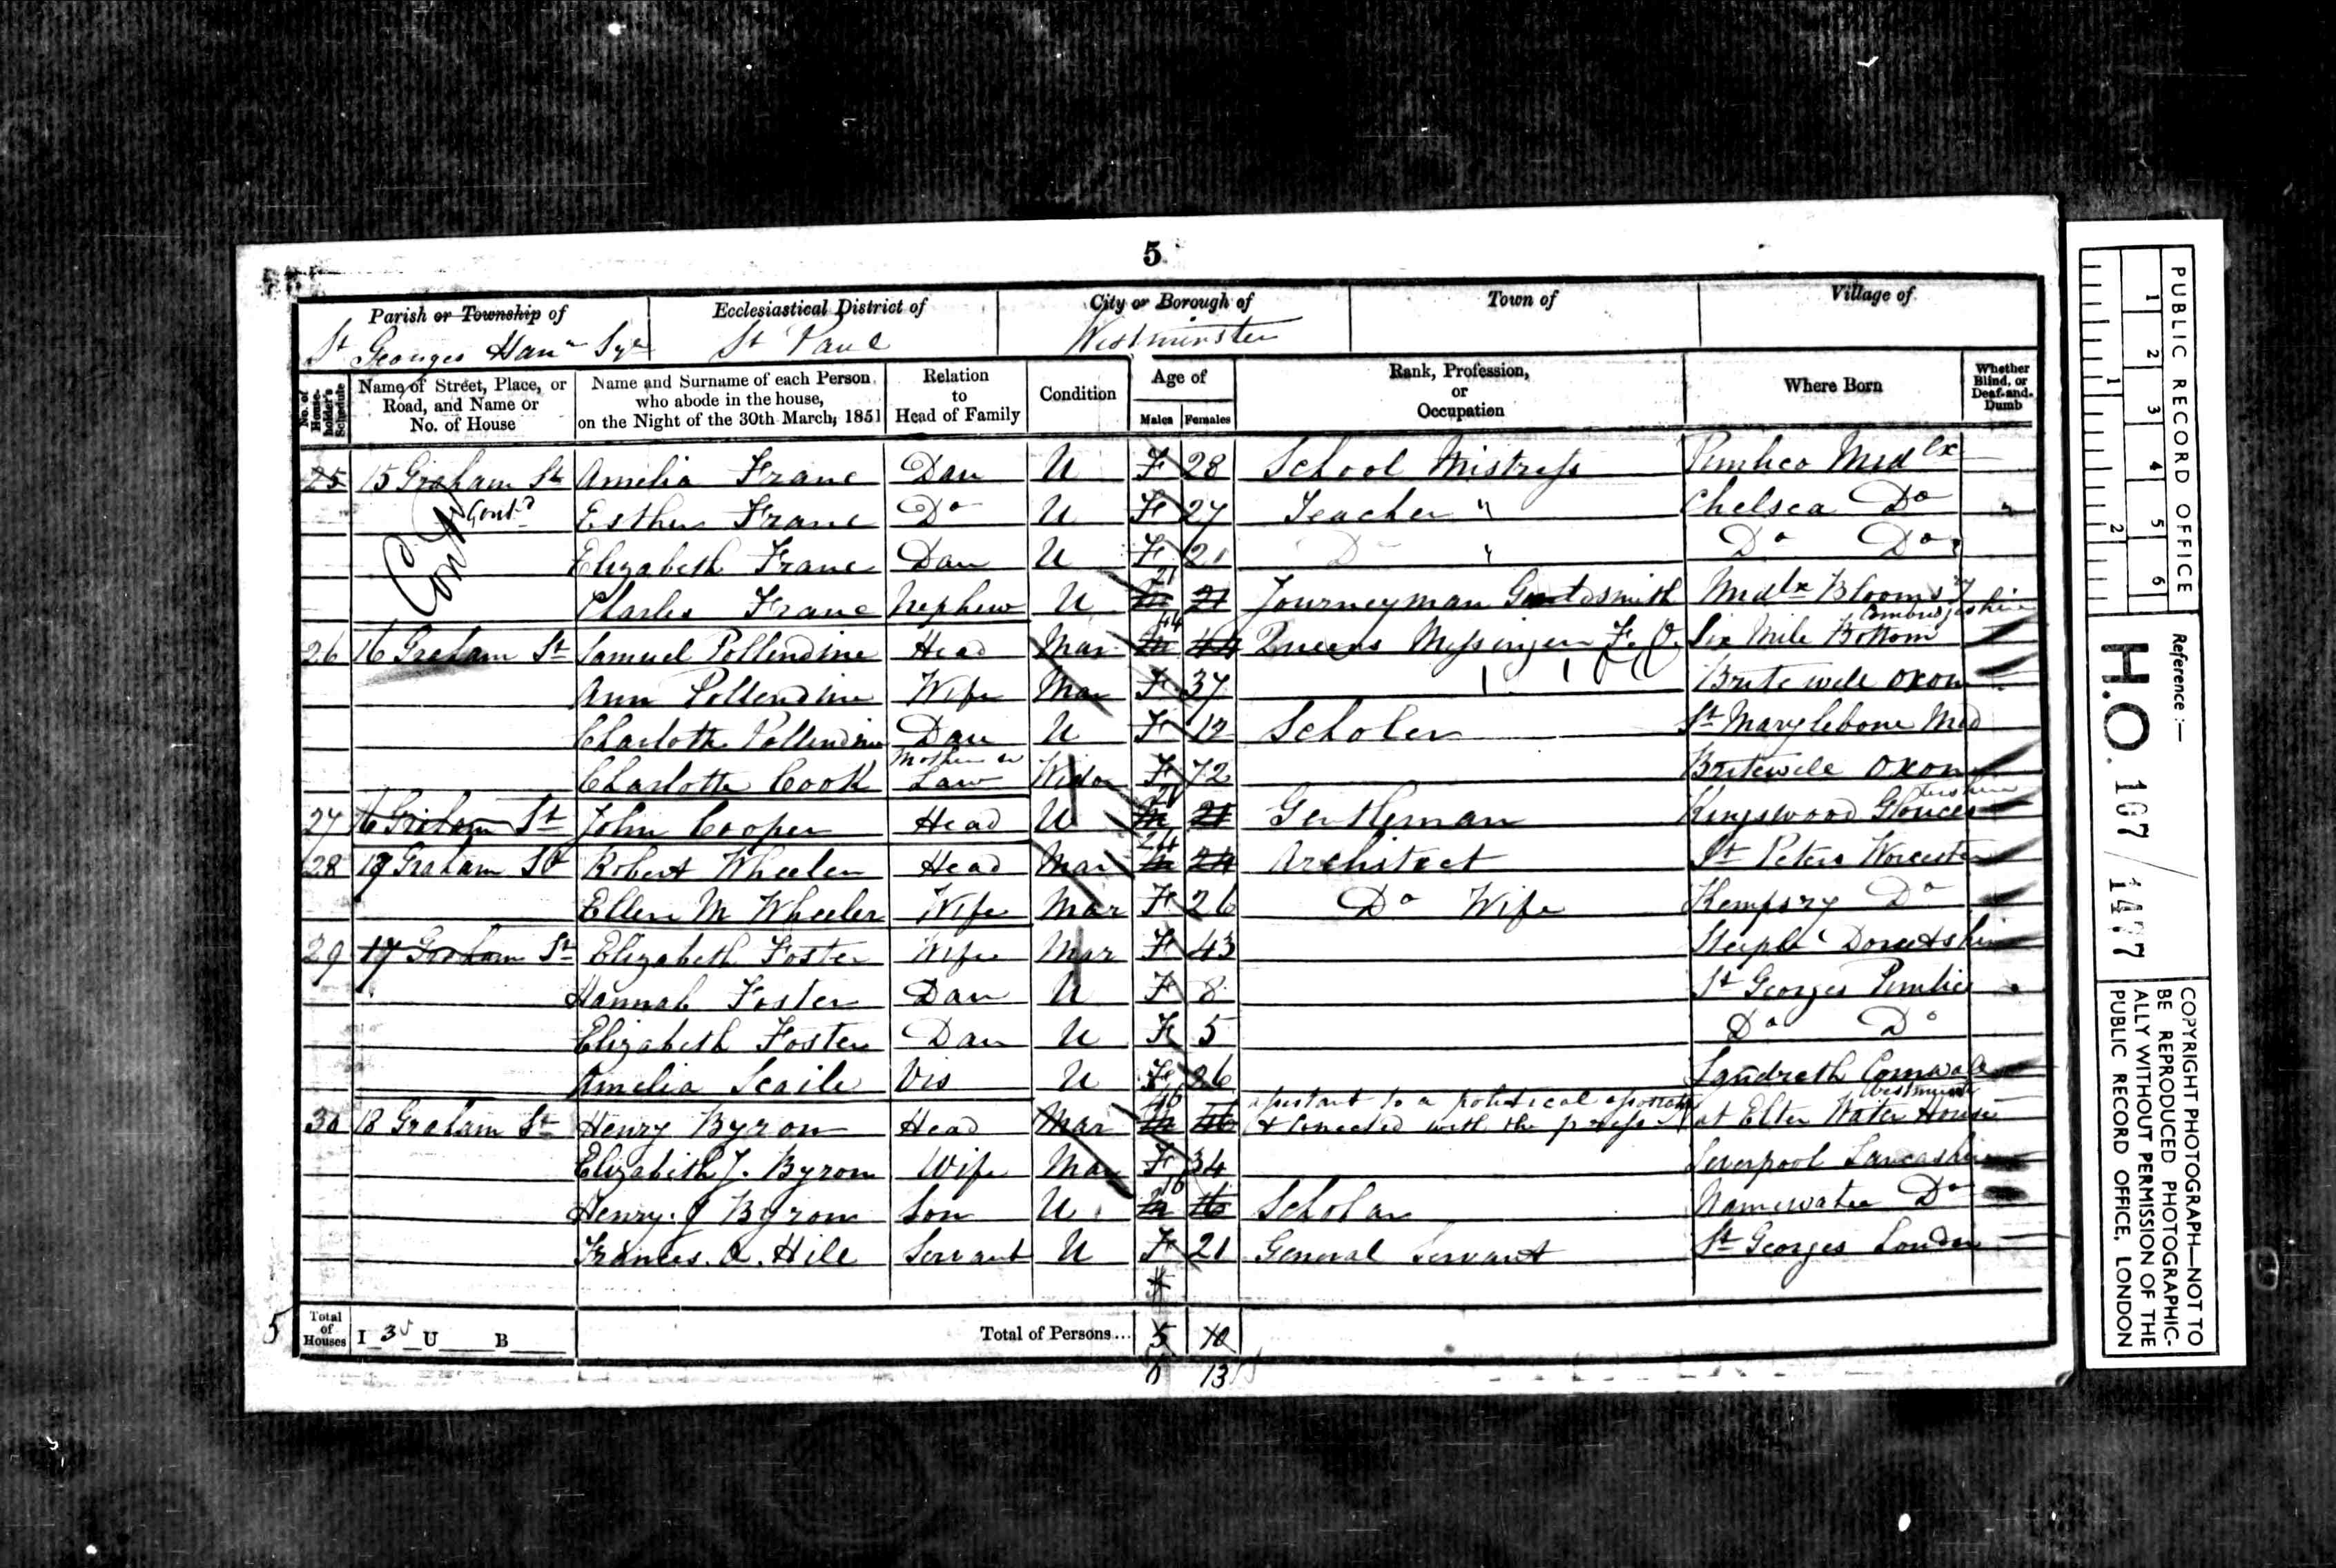 5
Parish or Township of
Ecclesiastical District of
City or Borough of
Town of
Village of
St Georges Hanr Sqr
St Paul
Westminster
No. of House-holder's Schedule
Name of Street, Place, or Road, and Name or No. of House
Name and Surname of each Person who abode in the house, on the Night of the 30th March, 1851
Relation to Head of Family
Condition
Age of
Males Females
Rank, Profession, or Occupation
Where Born
Whether Blind, or Deaf-and-Dumb
25 15 Graham St Amelia Franc Dau U F 28 School Mistress Pimlico Middx
Contd Esther Franc Do U F 27 Teacher " Chelsea Do
Contd Elizabeth Franc Dau U F 21 D " Do Do
Charles Franc Nephew U M 21 21 Journeyman Goldsmith Middx Bloomsy
26 16 Graham St Samuel Pollendine Head Mar M 44 44 Queens Messinger F.O. Six Mile Bottom
Ann Pollendine Wife Mar F 37 Britewell Oxon
Charlotte Pollendine Dau U F 12 Scholar St Marylebone Mid
Charlotte Cook Mother in Law Wido F 72 Britewell Oxon
27 16 Graham St John Cooper Head U M 21 21 Gentleman Kingswood Glouces
28 17 Graham St Robert Wheeler Head Mar M 24 24 Architect St Peters Worcester
Ellen M Wheeler Wife Mar F 26 Do Wife Kempsey Do
29 17 Graham St Elizabeth Foster Wife Mar F 43 Steeple Dorsetshire
Hannah Foster Dau U F 8 St Georges Pimlico
Elizabeth Foster Dau U F 5 Do Do
Amelia Scaile Vis U F 26 Landreth Cornwall
30 18 Graham St Henry Byron Head Mar M 46 46 to a political & connected with the press at Elter Water House
Elizabeth J. Byrom Wife Mar F 34 Liverpool Lancashire
Henry J Byrom Son U M 16 16 Scholar Do
Frances. A. Hill Servant U F 21 General Servant St Georges London
5
Total of Houses I 3 U B
Total of Persons... 5 10
13
PUBLIC RECORD OFFICE
1 2 3 4 5 6
1 2
Reference :—
H.O. 107 / 1477
COPYRIGHT PHOTOGRAPH—NOT TO
BE REPRODUCED PHOTOGRAPHIC-
ALLY WITHOUT PERMISSION OF THE
PUBLIC RECORD OFFICE, LONDON